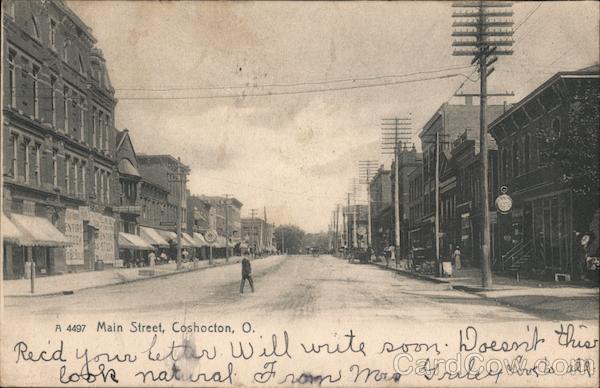 A 4497 Main Street, Coshocton, O.
Rec'd your letter. Will write soon. Doesn't this
look natural. From Mrs
CardCow.com